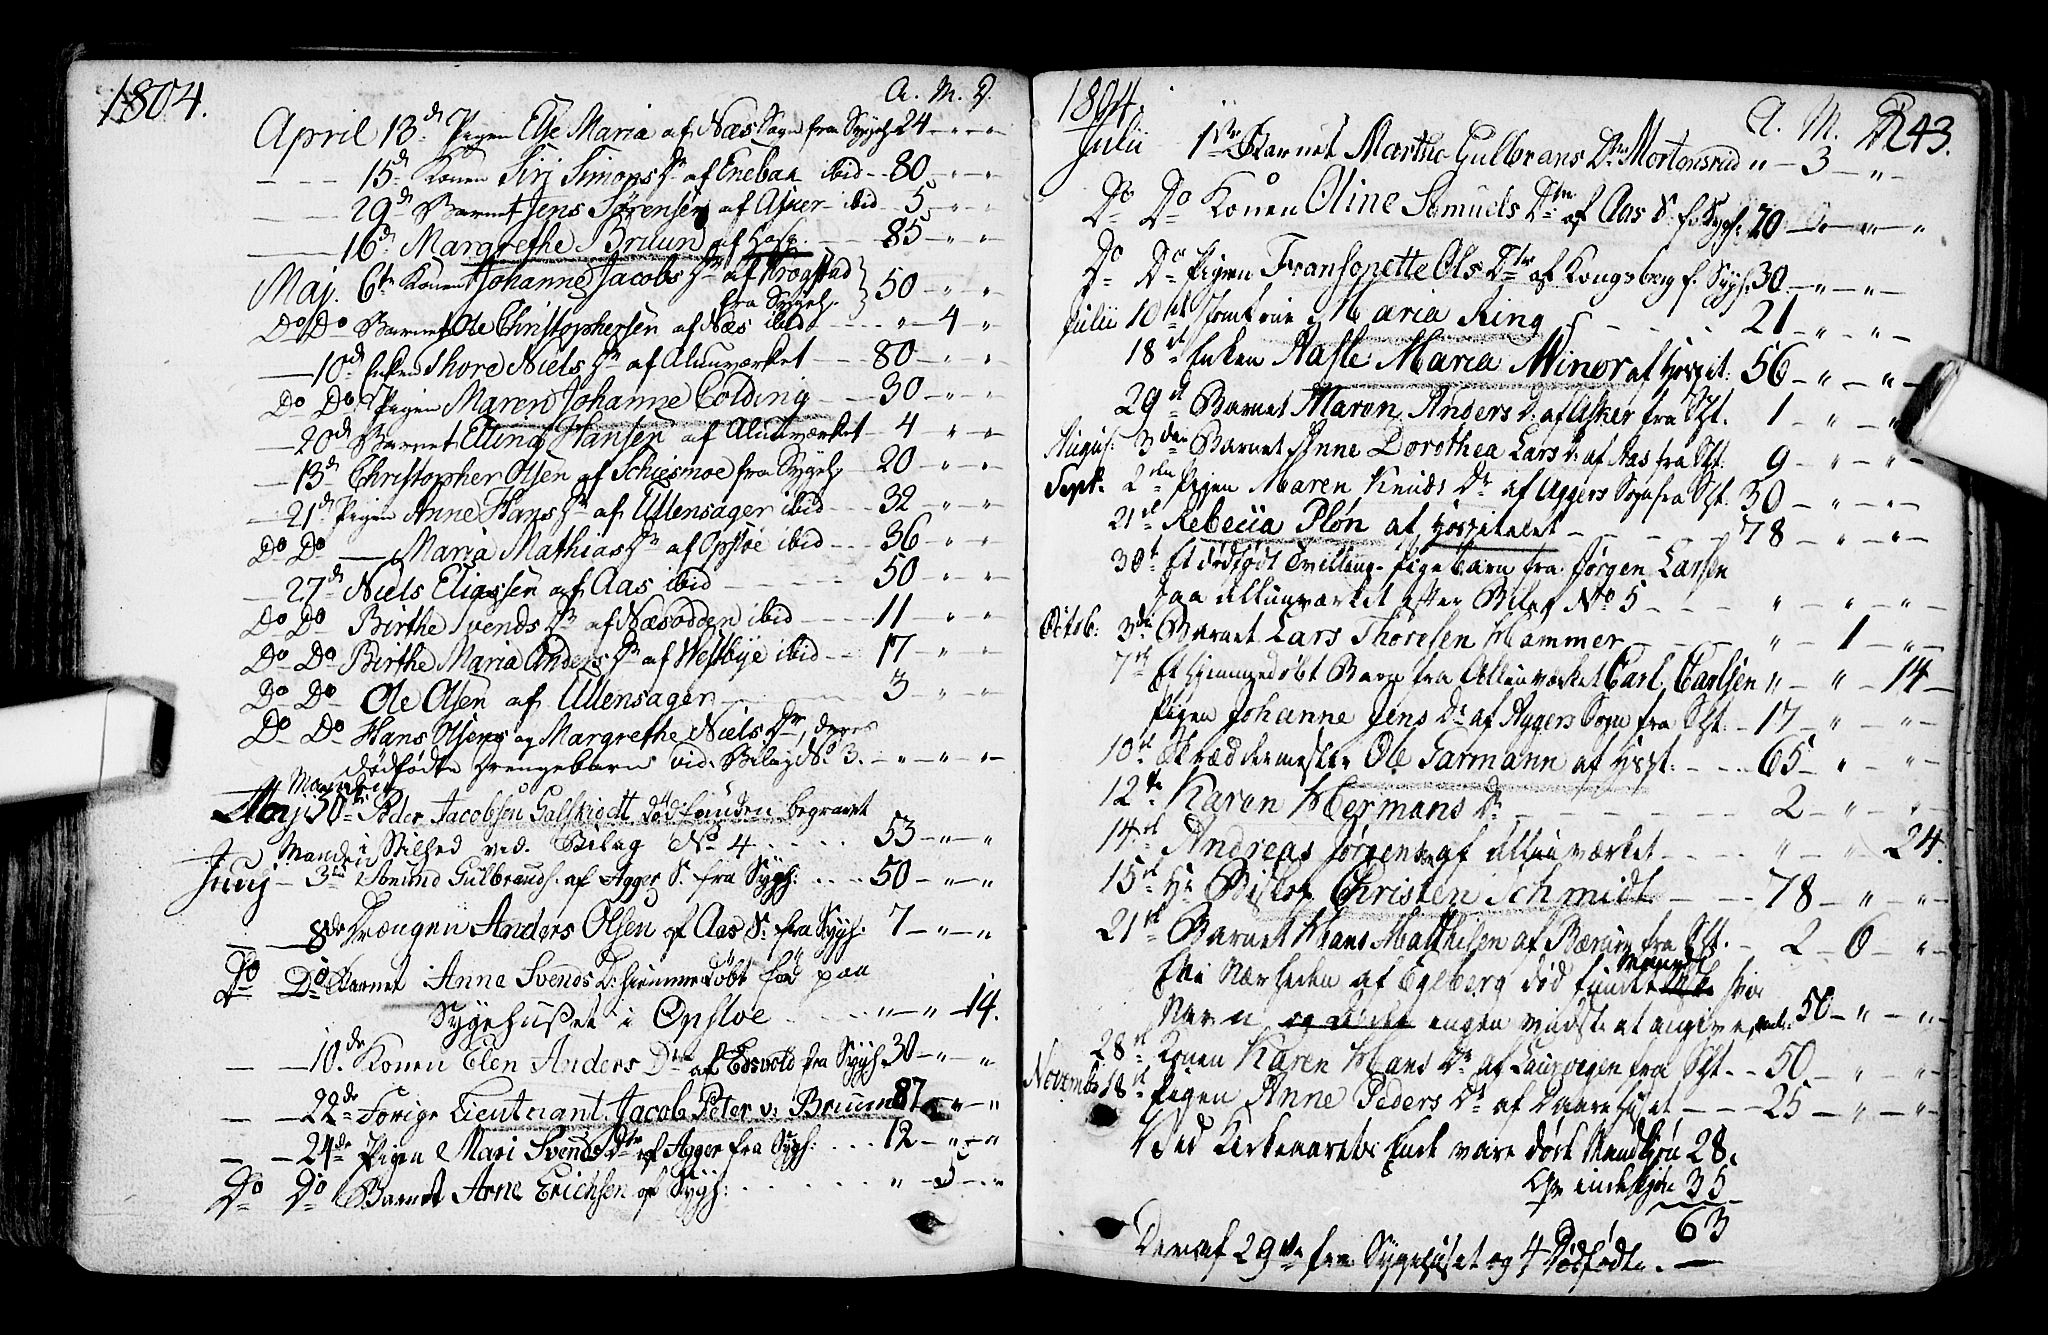 1804.
A. M. D.
April 13d Pigen Else Maria af Næs Sogn fra Sygeh 24 - " - "
15d Konen Siri Simons Dr af Enebak ibid - 80 - " - "
29d Barnet Jens Sørensen af Asker - ibid 5 - " - "
16d Margrethe Bruun af Hosp. 85 - " - "
Maj. 6te Konen Johanne Jacobs Dr af Krogstad
fra Sygeh. 50 - " - "
Do Do Barnet Ole Christophersen af Næs ibid " - 4 - "
10d Enken Thore Niels Dr af Alunværket 80 - " - "
Do Do Pigen Maren Johanne Colding 30 - " - "
20d Barnet Elling Hansen af Alunværket 4 - " - "
13d Christopher Olsen af Schiesmoe fra Sygeh 20 - " - "
21d Pigen Anne Hans Dr af Ullensager ibid 32 - " - "
Do Do — Maria Mathias Dr af Opsloe ibid 36 - " - "
27d Niels Eliassen af Aas ibid 50 - " - "
Do Do Birthe Svends Dr af Næsodden ibid 11 - " - "
Do Do Birthe Maria Anders Dr af Westbye ibid 17 - " - "
Do Do Ole Olsen af Ullensager 3 - " - "
Do Do Hans Olsens og Margrethe Niels Dr, deres
dødfødte Drengebarn vid. Bilag No 3. " - " - "
Manden
Maj 30te Peder Jacobsen Galskiødt, død funden begravet
i Stilhed ved. Bilag No 4 53 - " - "
Manden
Junij - 3die Amund Gulbrands. af Agger S. fra Sygh: 50 - " - "
8de Drængen Anders Olsen af Aas S. fra Sygh. 7 - " - "
Do Do Barnet Anne Svends D. hiemmedøbt fød paa
Sygehuset i Opsloe " - " - 14.
10de Konen Elen Anders Dr af Edsvold fra Sygh. 30 - " - "
22de Forige Lieutenant Jacob Peter v: Bruun 87 - " - "
24de Pigen Mari Svends Dtr af Agger fra Sygh: 12 - " - "
Do Do Barnet Arne Erichsen af Sygh: " - 5 - "
1804.
A. M. D 43.
Julii 1ste Barnet Marthe Gulbrans Dtr Mortensrud " - 3 - "
Do Do Konen Oline Samuels Dtr af Aas S. f. Sygh: 70 - " - "
Do Do Pigen Fransonette Ols Dtr af Kongsberg f. Sygh. 30 - " - "
Julii 10de Jomfrue Maria Ring 21 - " - "
18de Enken Aasle Maria Winor af Hospit: 56 - " - "
29de Barnet Maren Anders D. af Asker fra Sgt. 1 - " - "
August. 3die Barnet Anne Dorothea Lars D. af Aas fra Sgt. 9 - " - "
Sept. 2den Pigen Maren Knuds Dr af Aggers Sogn fra Sgt. 30 - " - "
21de Rebecca Pløn af Hospitalet 78 - " - "
30te Et dødfødt Tvilling-Pigebarn fra Jørgen Larsen
paa Allunværket efter Bilag No 5 " - " - "
Octob: 3die Barnet Lars Thoresen Hammer " - 1 - "
7de Et hjemmedøbt Barn fra Allunværket Carl Carlsen " - " - 14
Pigen Johanne Jens Dr af Aggers Sogn fra Sgt. 17 - " - "
10de Skræddermester Ole Sarmann af Hspt. 65 - " - "
12te Karen Hermans Dr 2 - " - "
14de Andreas Jørgens. af Allunværket " - " 24.
15de Hr Biskop Christen Schmidt 78 - " - "
21de Barnet Hans Matthisen af Bærum fra Sgt. 2 - 6 - "
En i Nærheden af Egeberg død funden Mand hvis
Navn og Alder ingen vidste at angive, 50 - " - "
28de Konen Karen Hans Dr af Laurvigen fra Sgt. 50 - " - "
Novemb. 18de Pigen Anne Peders Dr af Daarehuset 25 - " - "
Ved Kirkeaarets Ende vare døde Mandkjøn 28.
Qvindekjøn 35
63
Deraf 29 fra Sygehuset og 4 Dødfødte.